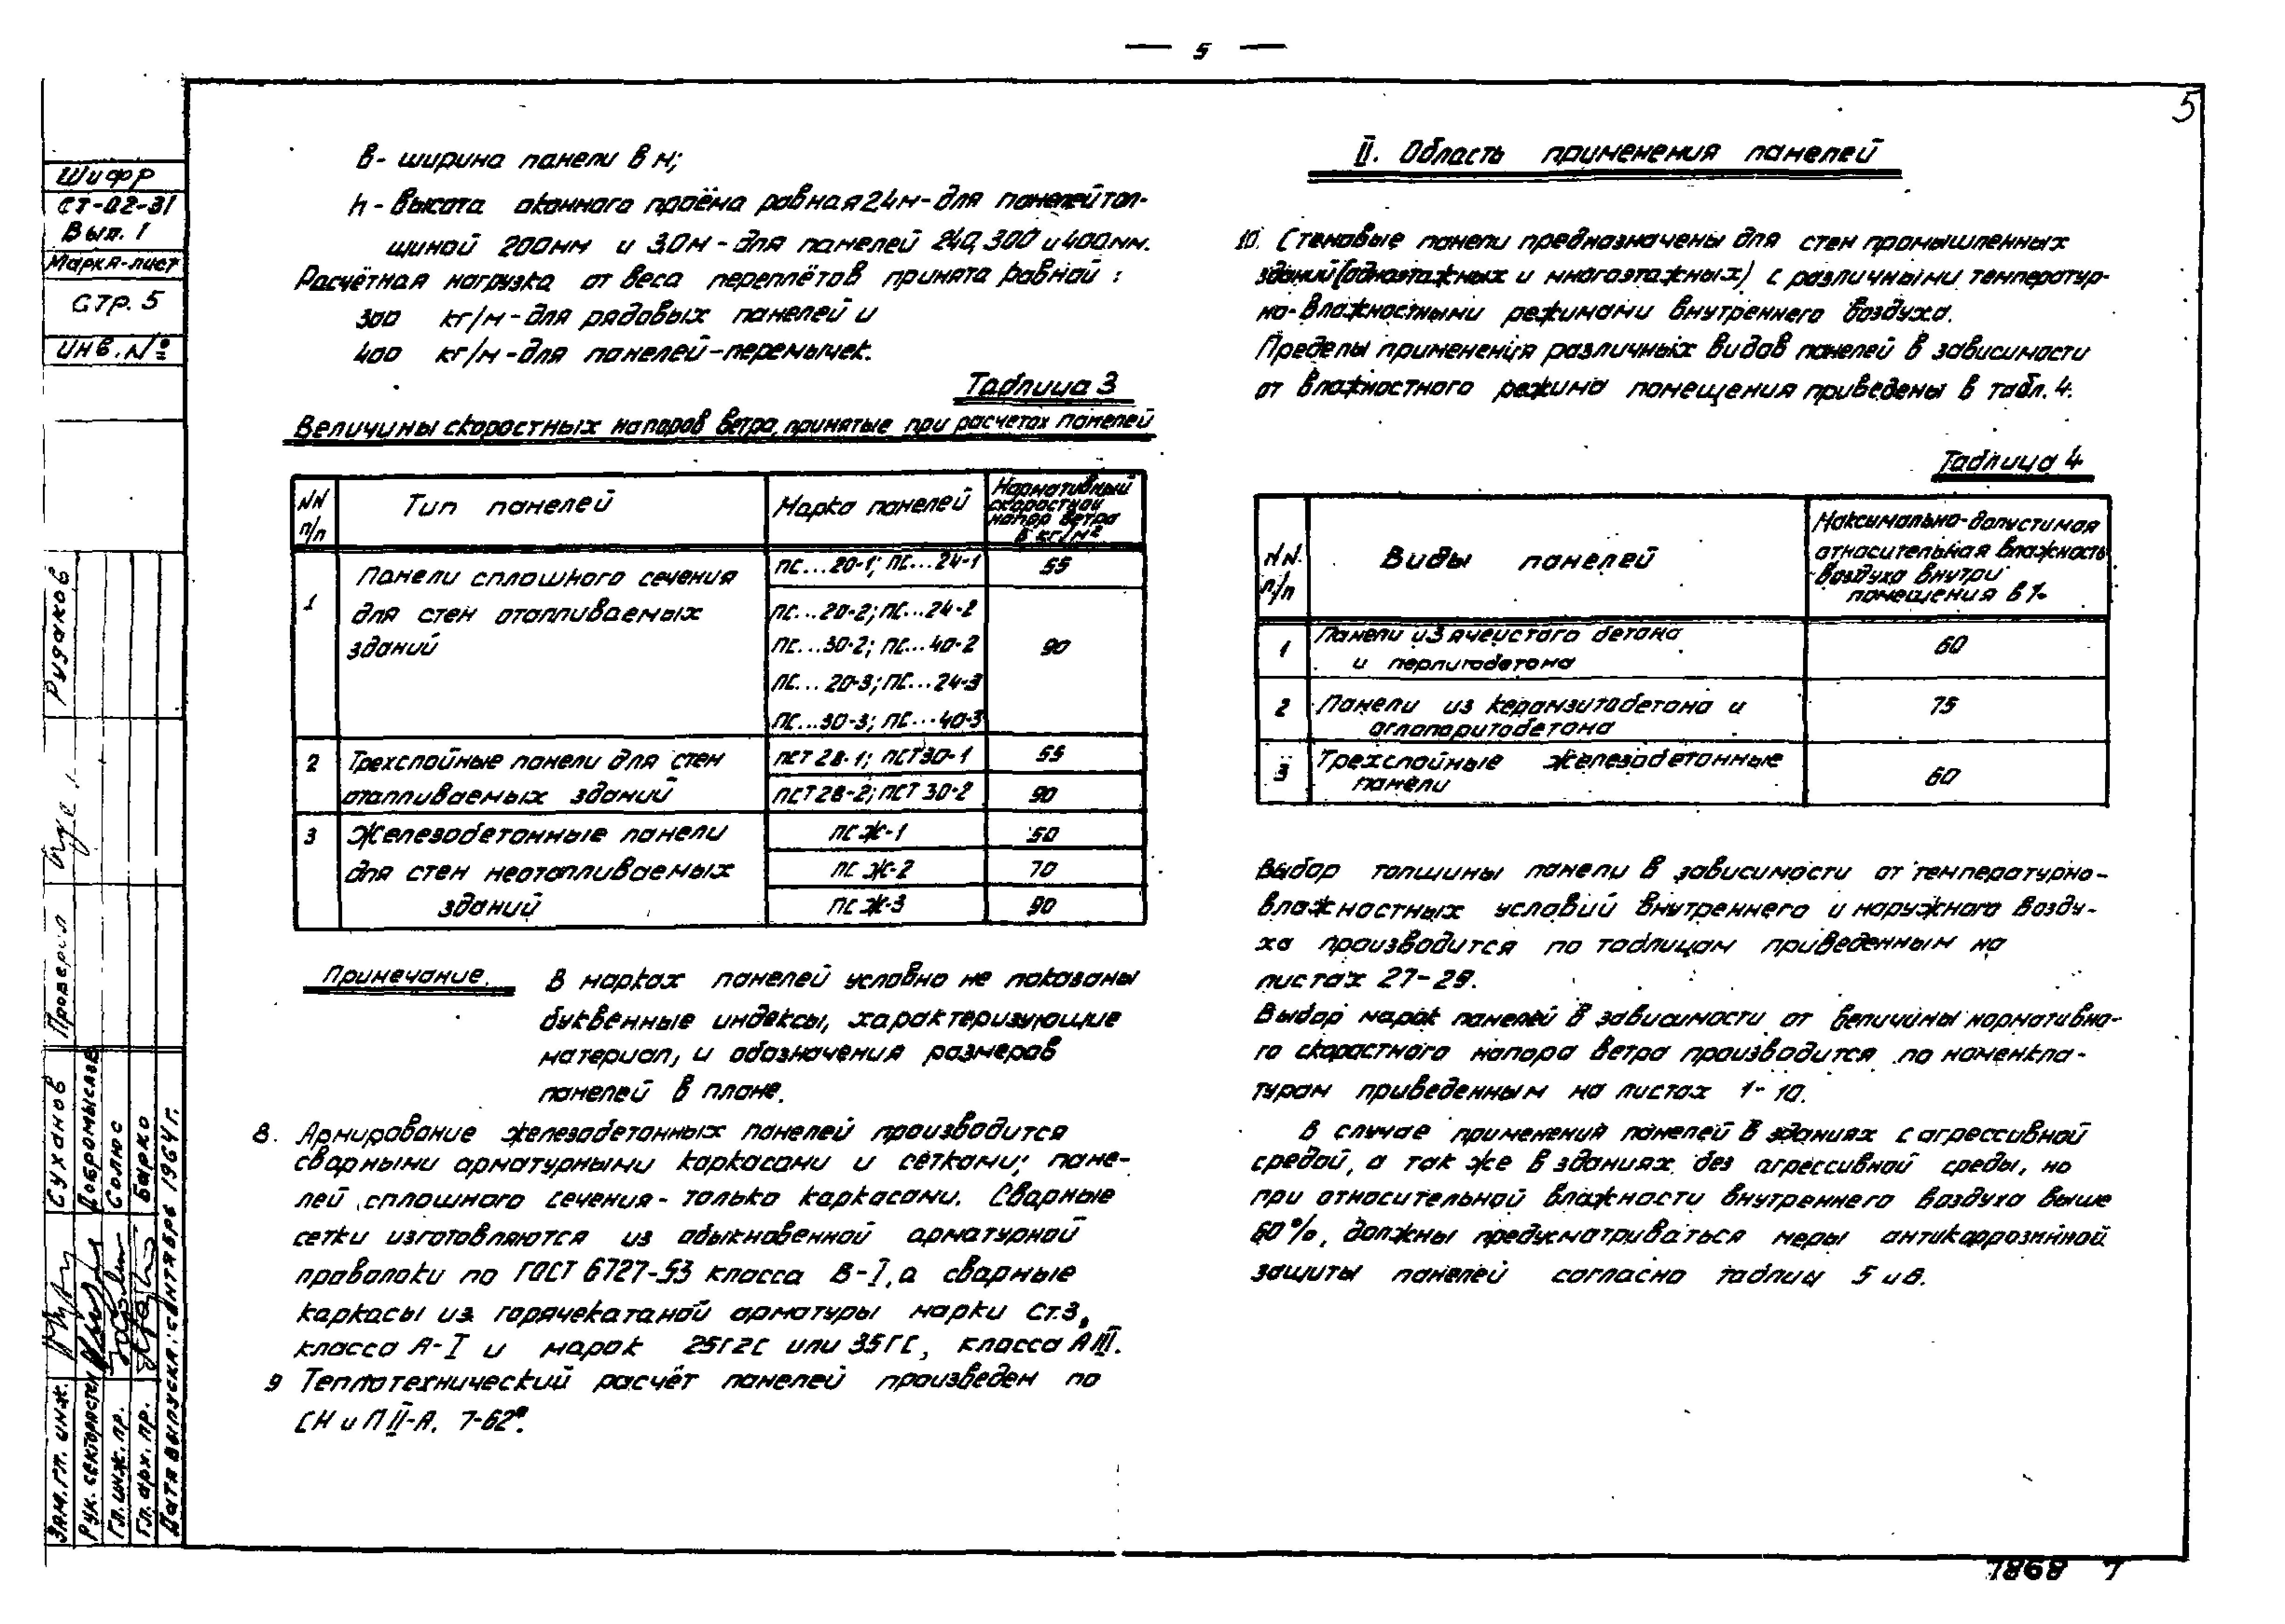 — 5 —
5
Шифр
СТ-02-31
Вып. 1
Марка-лист
Стр. 5
Инв. №
в - ширина панели в м;
h - высота оконного проёма равная 2,4 м - для панелей тол-
щиной 200 мм и 3,0 м - для панелей 240, 300 и 400 мм.
Расчётная нагрузка от веса переплётов принята равной :
300 кг/м - для рядовых панелей и
400 кг/м - для панелей-перемычек.
Таблица 3
Величины скоростных напоров ветра, принятые при расчетах панелей
NN п/п
Тип панелей
Марка панелей
Нормативный скоростной напор ветра в кг/м²
1
Панели сплошного сечения
для стен отапливаемых
зданий
ПС...20-1; ПС...24-1
55
ПС...20-2; ПС...24-2
ПС...30-2; ПС...40-2
90
ПС...20-3; ПС...24-3
ПС...30-3; ПС...40-3
2
Трехслойные панели для стен
отапливаемых зданий
ПСТ 28-1; ПСТ 30-1
55
ПСТ 28-2; ПСТ 30-2
90
3
Железобетонные панели
для стен неотапливаемых
зданий
ПСЖ-1
50
ПСЖ-2
70
ПСЖ-3
90
Примечание. В марках панелей условно не показаны
буквенные индексы, характеризующие
материал, и обозначения размеров
панелей в плане.
8. Армирование железобетонных панелей производится
сварными арматурными каркасами и сетками; пане-
лей сплошного сечения - только каркасами. Сварные
сетки изготовляются из обыкновенной арматурной
проволоки по ГОСТ 6727-53 класса В-I, а сварные
каркасы из горячекатаной арматуры марки Ст.3,
класса А-I и марок 25Г2С или 35ГС, класса АIII.
9 Теплотехнический расчёт панелей произведен по
СН и П II-А. 7-62*.
II. Область применения панелей
10. Стеновые панели предназначены для стен промышленных
зданий (одноэтажных и многоэтажных) с различными температур-
но-влажностными режимами внутреннего воздуха.
Пределы применения различных видов панелей в зависимости
от влажностного режима помещения приведены в табл. 4.
Таблица 4
NN. п/п
Виды панелей
Максимально-допустимая
относительная влажность
воздуха внутри
помещения в %
1
Панели из ячеистого бетона
и перлитобетона
60
2
Панели из керамзитобетона и
аглопоритобетона
75
3
Трехслойные железобетонные
панели
60
Выбор толщины панели в зависимости от температурно-
влажностных условий внутреннего и наружного возду-
ха производится по таблицам приведенным на
листах 27-29.
Выбор марок панелей в зависимости от величины нормативно-
го скоростного напора ветра производится по номенкла-
турам приведенным на листах 1-10.
В случае применения панелей в зданиях с агрессивной
средой, а так же в зданиях без агрессивной среды, но
при относительной влажности внутреннего воздуха выше
60%, должны предусматриваться меры антикоррозийной
защиты панелей согласно таблиц 5 и 6.
Рудаков
Проверил
Зам. гл. инж. Суханов
Рук. сектора
Гл. инж. пр.
Гл. арх. пр. Барко
Дата выпуска: сентябрь 1964 г.
7868 7